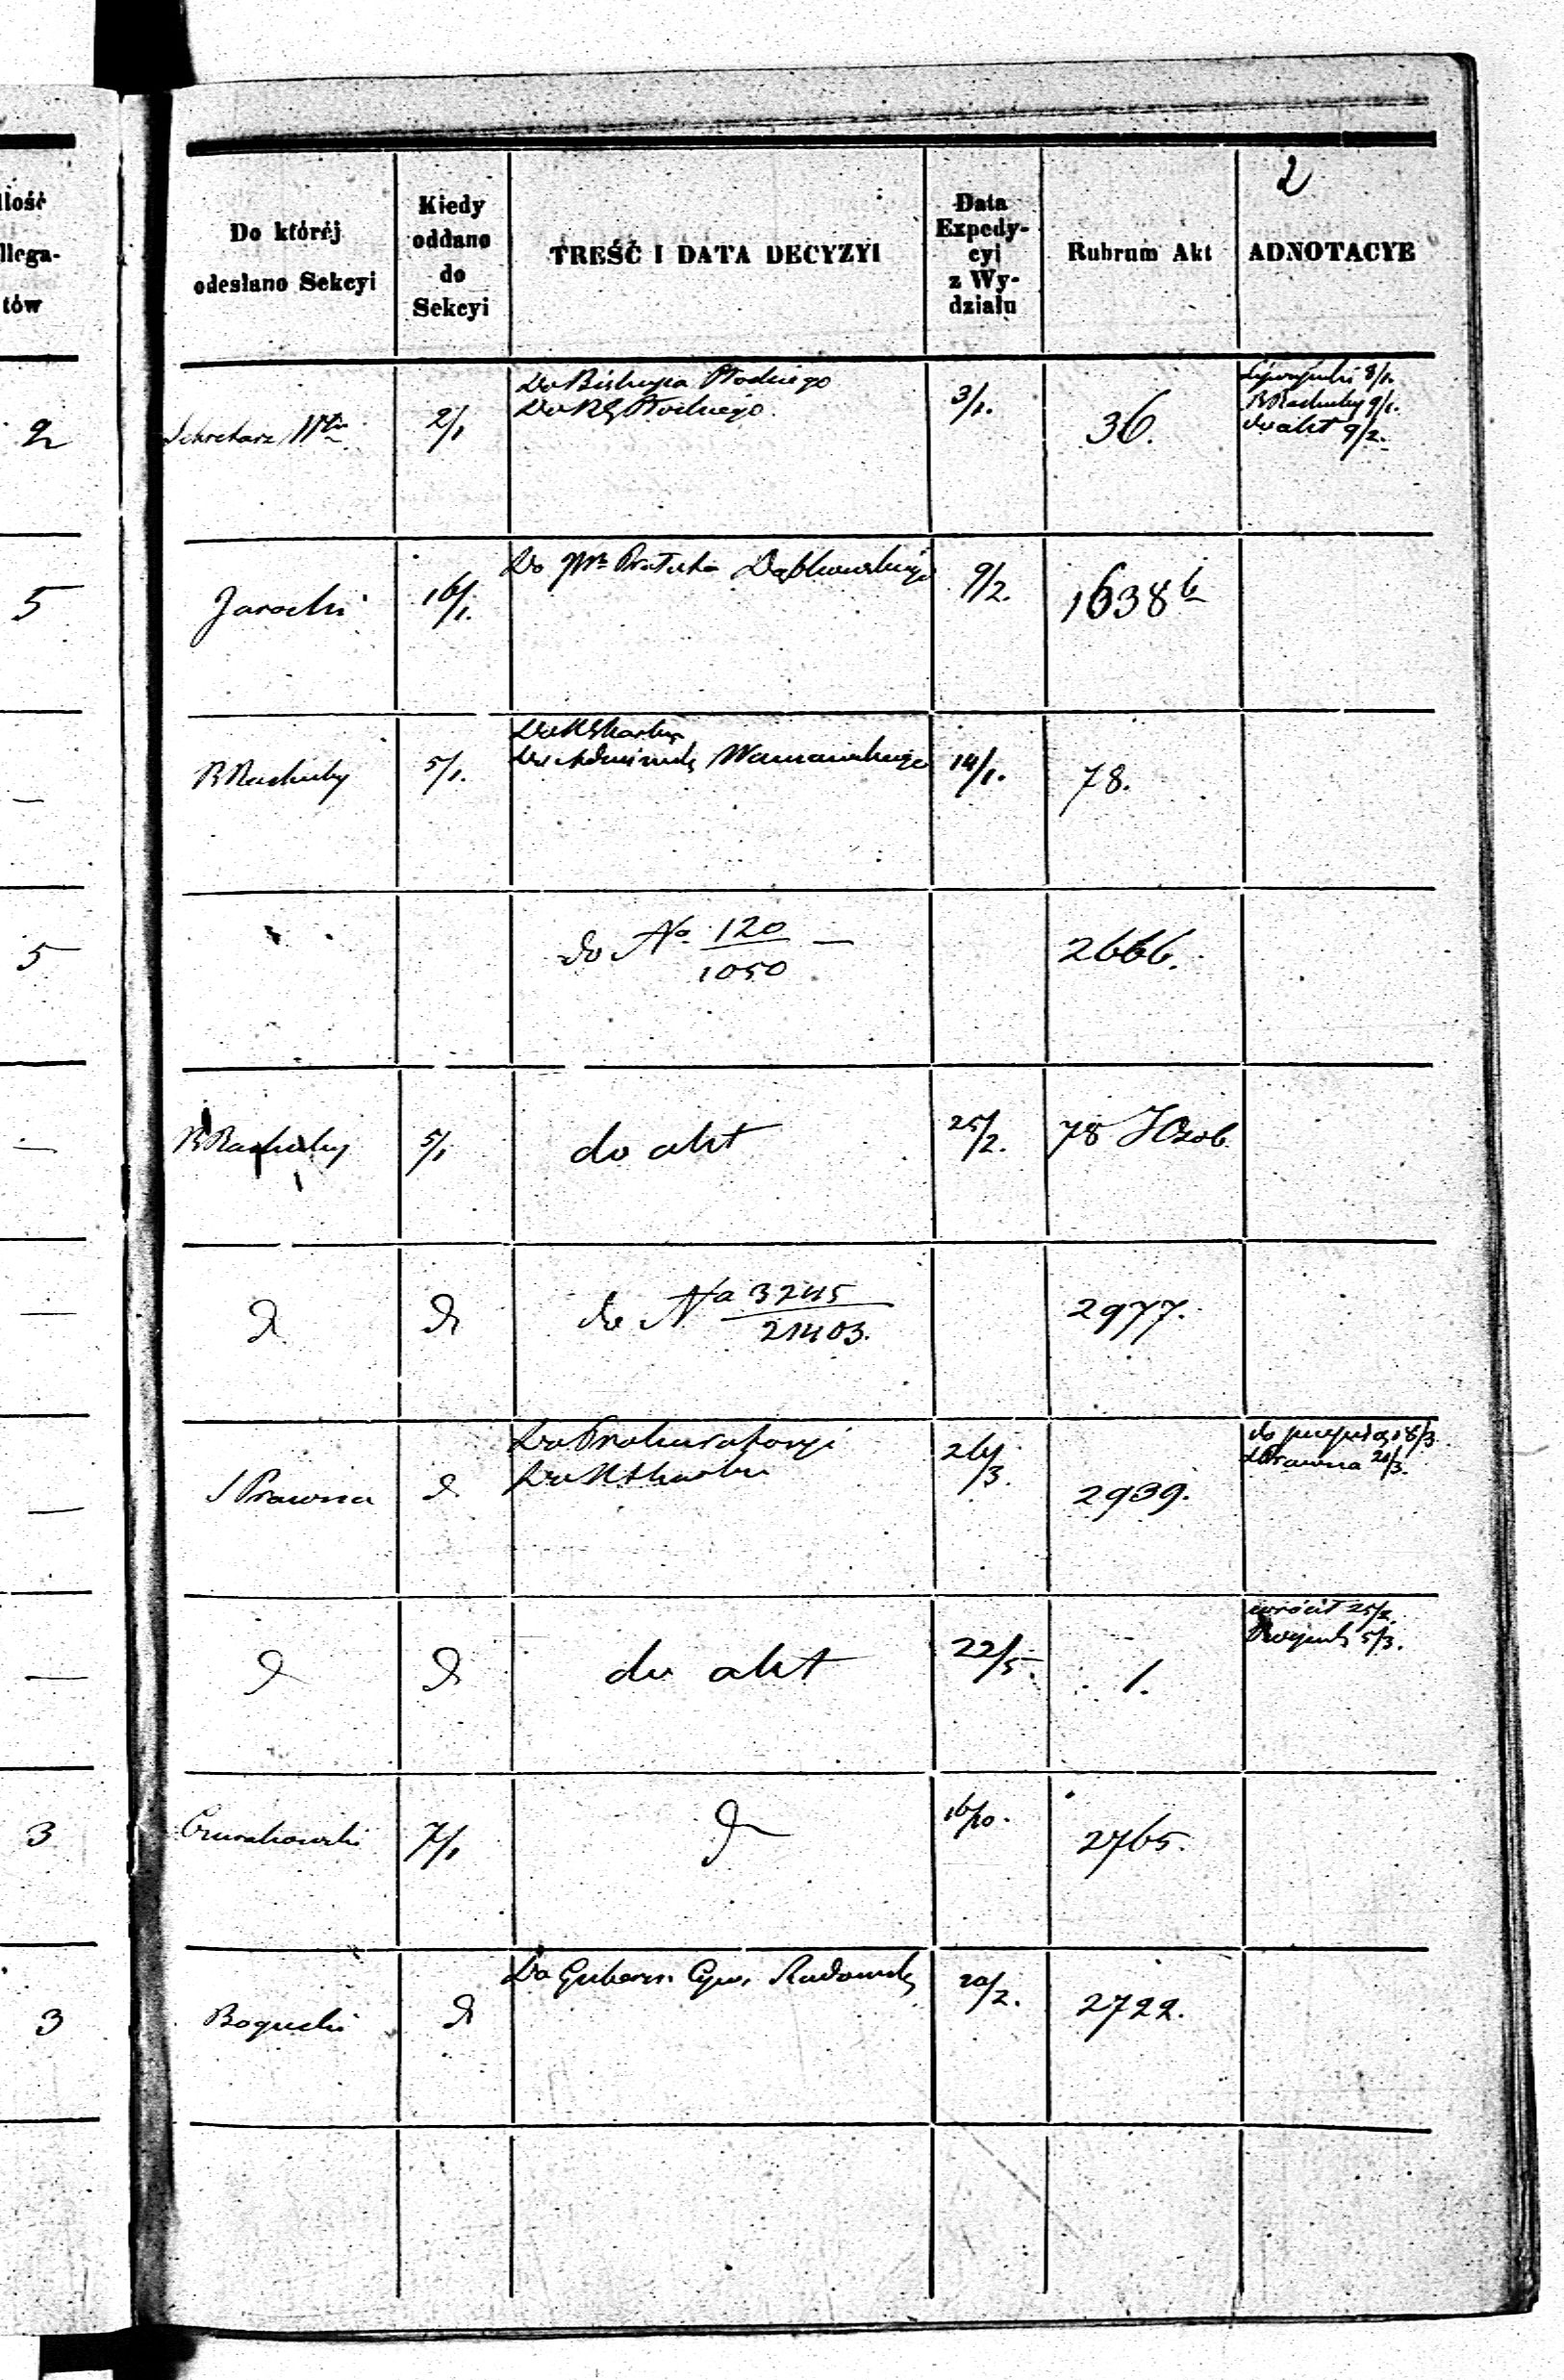 2
Ilość
llega-
tów
Do któréj
odesłano Sekcyi
Kiedy
oddano
do
Sekcyi
TREŚĆ I DATA DECYZYI
Data
Expedy-
cyi
z Wy-
działu
Rubrum Akt
ADNOTACYE
2
Sekretarz
2/1
Do Biskupa Płockiego
Do RG Płockiego
3/1.
36.
8/1.
B Rachuby 9/1.
do akt 9/2.
5
Jarocki
16/1.
Do Prałata Dąbkowskiego
9/2.
1638 b
—
B Rachuby
5/1.
Do K Skarbu
Do Administr Warszawskiego
14/1.
78.
5
do No 120/1050 —
2666.
—
B Rachuby
5/1
do akt
25/2.
78 J Osob.
—
do No 3245/21403.
2977.
—
S Prawna
Do Prokuratoryi
Do K Skarbu
26/3.
2939.
18/3
S Prawna 20/3.
—
do akt
22/5.
1.
wrócił 25/2.
5/3.
3
7/1
16/10.
2765.
3
Bogucki
Do Gubern. Cyw. Radomsk
20/2.
2722.